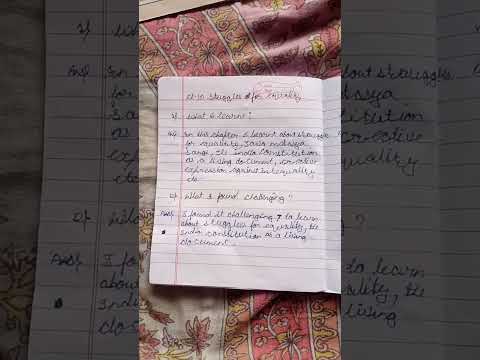 ch-10 struggles for equality
1) what I learnt?
Ans) In this chapter, I learnt about struggles
for equality, Tawa matsya
Sangh, the India constitution
as a living document, creative
expression against inequality
etc.
2) what I found challenging?
Ans) I found it challenging to learn
about struggles for equality, the
India constitution as a living
document.